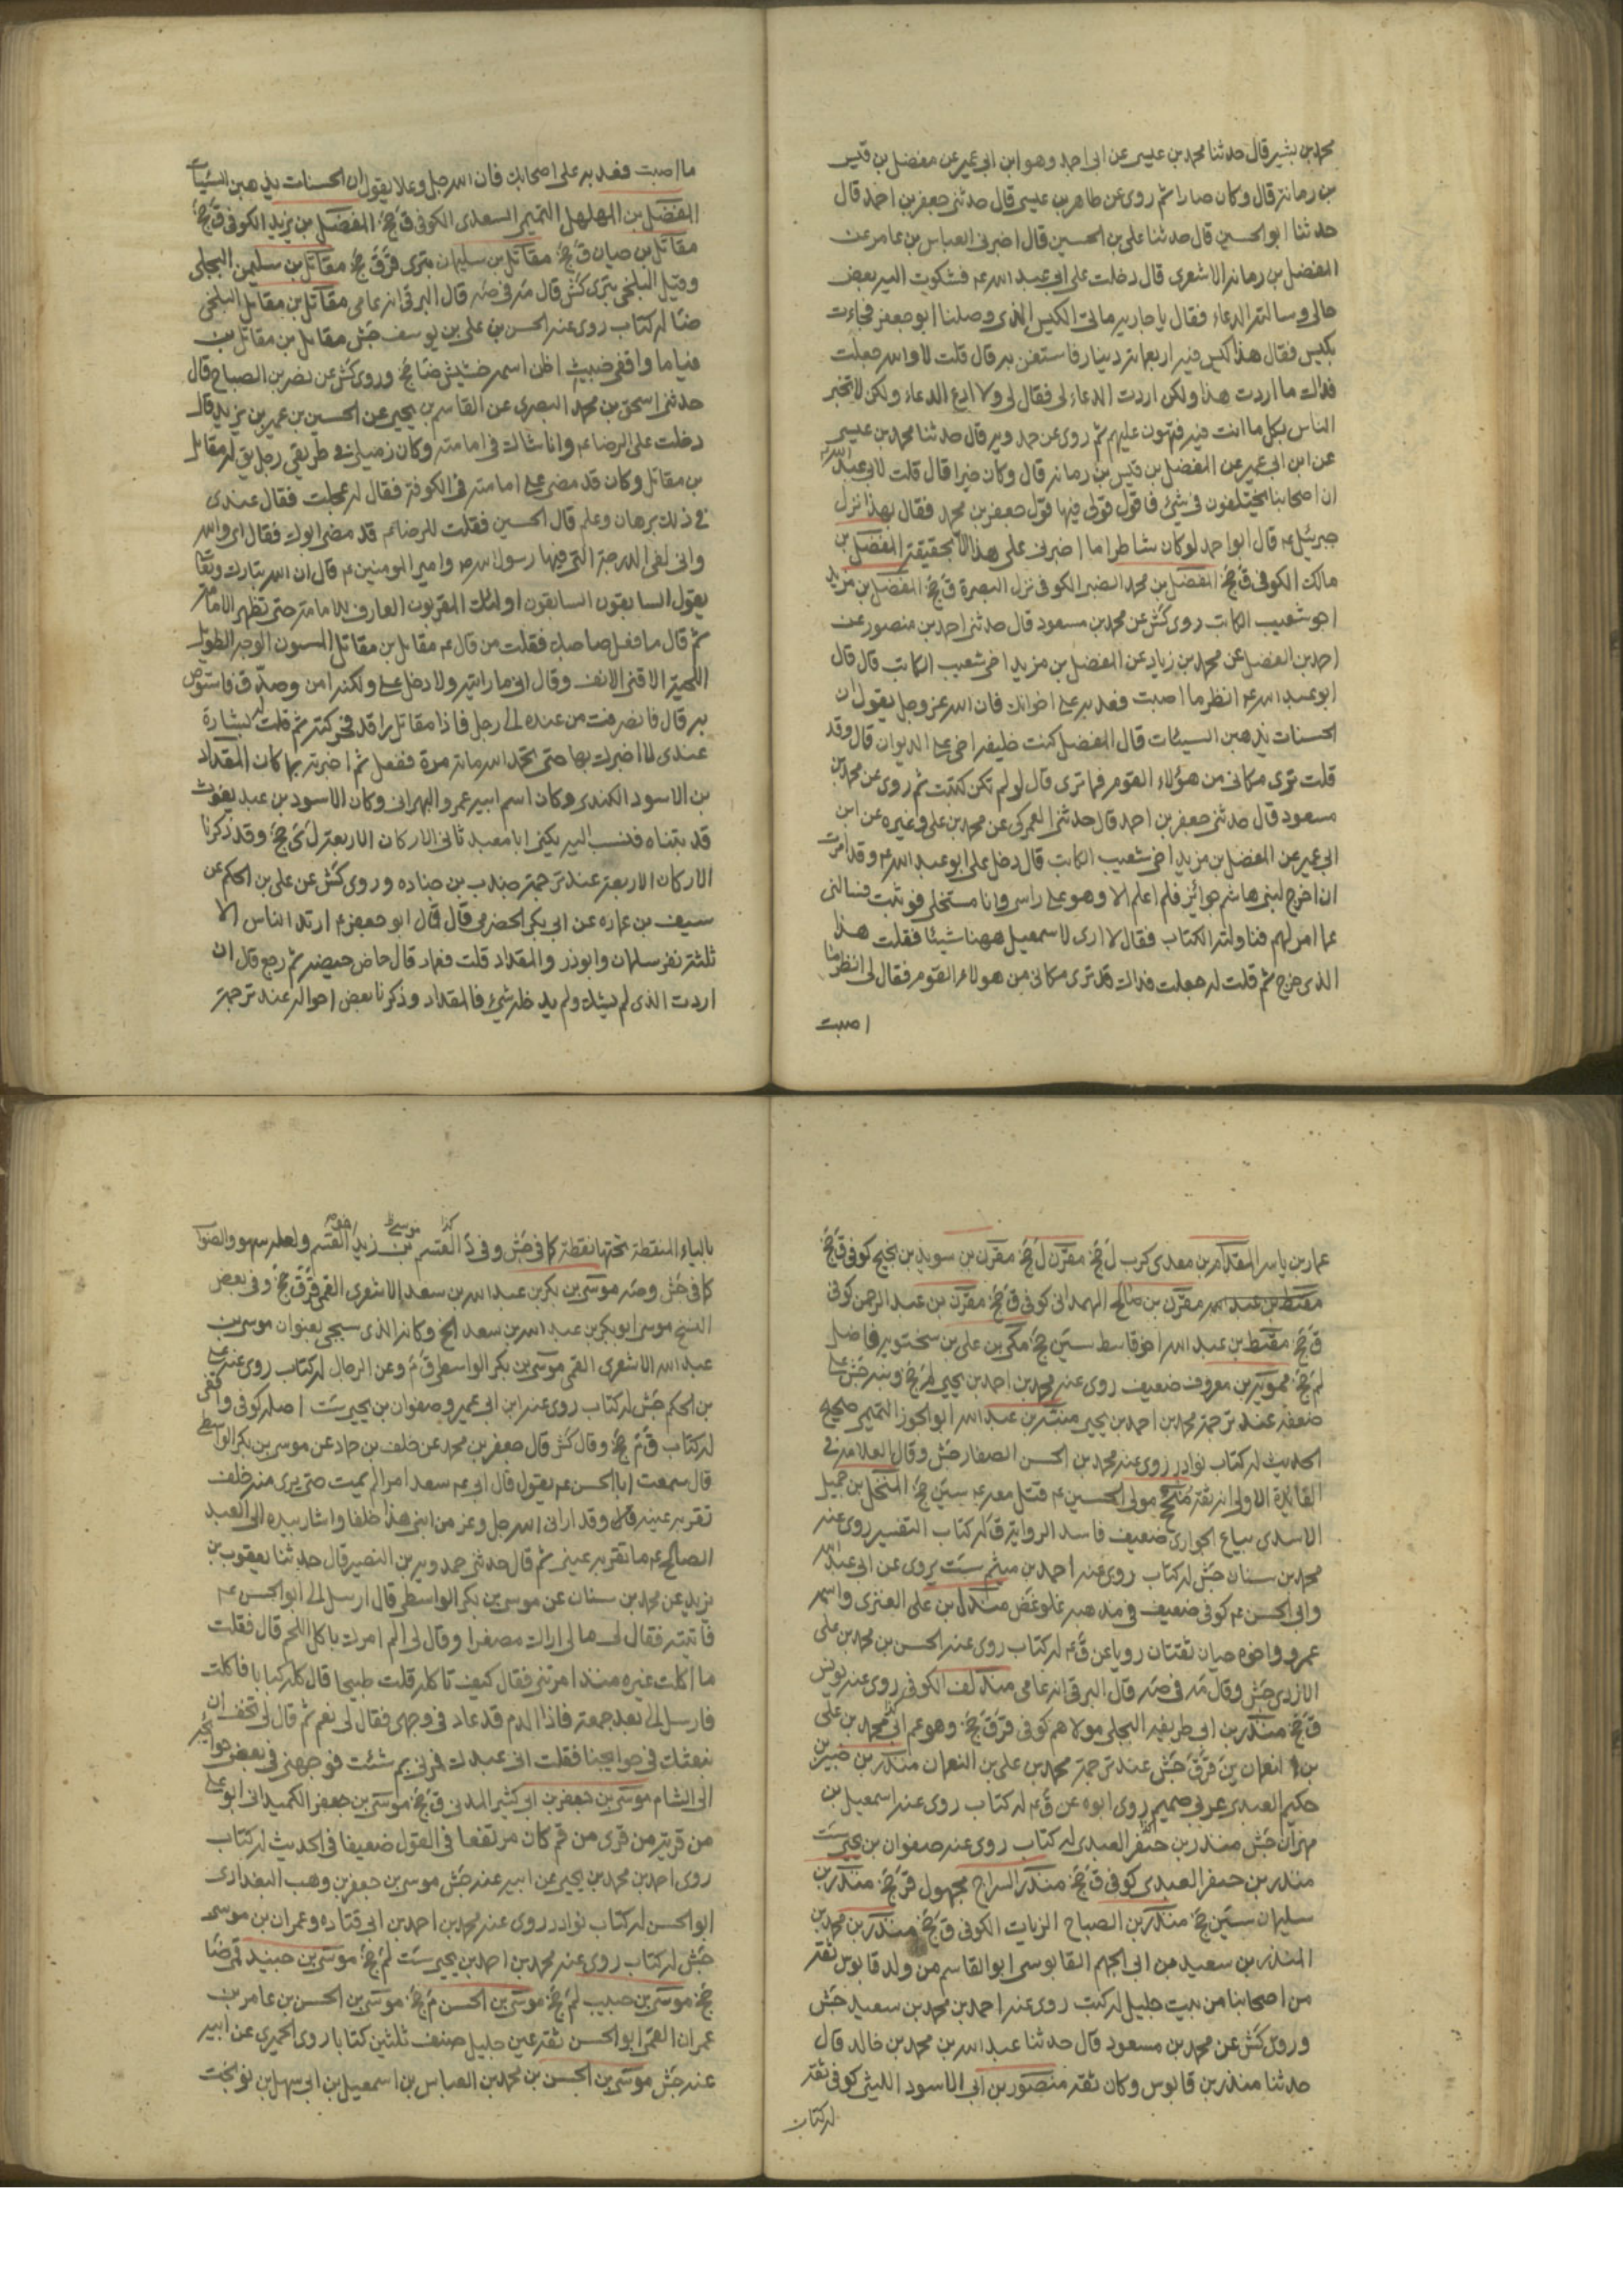 محمد بن بشير قال حدثنا محمد بن عيسى عن ابى احمد وهو ابن ابى عمير عن مفضل بن قيس
بن رمانة قال وكان صارا ثم روى عن طاهر بن عيسى قال حدثنى جعفر بن احمد قال
حدثنا ابو الحسين قال حدثنا على بن الحسين قال اخبرنى العباس بن عامر عن
المفضل بن رمانه الاشعرى قال دخلت على ابى عبد الله ع فشكوت اليه بعض
حالى وسالته الدعاء فقال يا جاريه هاتى الكيس الذى وصلنا ابو جعفر فجاءت
بكيس فقال هذا كيس فيه اربعمائة دينار فاستعن به قال قلت لا والله جعلت
فداك ما اردت هذا ولكن اردت الدعاء لى فقال لى ولا ادع الدعاء ولكن لا تخبر
الناس بكل ما انت فيه فتهون عليهم ثم روى عن حمدويه قال حدثنا محمد بن عيسى
عن ابن ابى عمير عن المفضل بن قيس بن رمانه قال وكان خيرا قال قلت لابى عبد الله ع
ان اصحابنا يختلفون فى شئ فاقول قولى فيها قول جعفر بن محمد فقال بهذا نزل
جبرئيل ع قال ابو احمد لو كان شاطرا ما اخبرنى على هذا الا بحقيقة المفضل بن
مالك الكوفى ق جخ المفضل بن محمد الضبى الكوفى نزل البصرة ق جخ المفضل بن مزيد
اخو شعيب الكاتب روى كش عن محمد بن مسعود قال حدثنى احمد بن منصور عن
احمد بن الفضل عن محمد بن زياد عن المفضل بن مزيد اخى شعيب الكاتب قال قال
ابو عبد الله ع انظر ما اصبت فعد به على اخوانك فان الله عز وجل يقول ان
الحسنات يذهبن السيئات قال المفضل كنت خليفة اخى على الديوان قال وقد
قلت ترى مكانى من هؤلاء القوم فما ترى قال لو لم تكن كتبت ثم روى عن محمد بن
مسعود قال حدثنى جعفر بن احمد قال حدثنى العمركى عن محمد بن على وغيره عن ابن
ابى عمير عن المفضل بن مزيد اخى شعيب الكاتب قال دخل على ابو عبد الله ع وقد امرت
ان اخرج لبنى هاشم جوائز فلم اعلم الا وهو على راسى وانا مستخلى فوثبت فسالنى
عما امر لهم فناولته الكتاب فقال لا ارى لاسمعيل ههنا شيئا فقلت هذا
الذى خرج ثم قلت له جعلت فداك قد ترى مكانى من هولاء القوم فقال لى انظر ما
اصبت
ما اصبت فعد به على اصحابك فان الله جل وعلا يقول ان الحسنات يذهبن السيئات
المفضل بن المهلهل التميمى السعدى الكوفى ق جخ المفضل بن يزيد الكوفى ق جخ
مقاتل بن حيان ق جخ مقاتل بن سليمان بترى قر ق جخ مقاتل بن سليمن البجلى
وقيل البلخى بترى كش قال مه فى صه قال البرقى انه عامى مقاتل بن مقاتل البلخى
ضا له كتاب روى عنه الحسن بن على بن يوسف جش مقاتل بن مقاتل بن
قياما واقفى خبيث اظن اسمه خشيش ضا جخ وروى كش عن نصر بن الصباح قال
حدثنى اسحق بن محمد البصرى عن القاسم بن يحيى عن الحسين بن عمر بن يزيد قال
دخلت على الرضا ع وانا شاك فى امامته وكان زميلى فى طريقى رجل يق له مقاتل
بن مقاتل وكان قد مضى على امامته فى الكوفة فقال له عجلت فقال عندى
فى ذلك برهان وعلم قال الحسين فقلت للرضا ع قد مضى ابوك فقال اى والله
وانى لفى الدرجة التى فيها رسول الله ص وامير المومنين ع قال ان الله تبارك وتعا
يقول السابقون السابقون اولئك المقربون العارف للامامة حتى تظهر الامام
ثم قال ما فعل صاحبك فقلت من قال ع مقاتل بن مقاتل المسنون الوجه الطويل
اللحية الاقنى الانف وقال انى ما رايته ولا دخل على ولكنه امن وصدق فاستوص
به قال فانصرفت من عنده الى رجلى فاذا مقاتل راقد فحركته ثم قلت له بشارة
عندى لا اخبرك بها حتى تحمد الله مائة مرة ففعل ثم اخبرته بما كان المقداد
بن الاسود الكندى وكان اسم ابيه عمرو البهرانى وكان الاسود بن عبد يغوث
قد تبناه فنسب اليه يكنى ابا معبد ثانى الاركان الاربعة ل ى جخ وقد ذكرنا
الاركان الاربعة عند ترجمة جندب بن جناده وروى كش عن على بن الحكم عن
سيف بن عماره عن ابى بكر الحضرمى قال قال ابو جعفر ع ارتد الناس الا
ثلثة نفر سلمان وابو ذر والمقداد قلت فعمار قال حاص حيصه ثم رجع قال ان
اردت الذى لم يشك ولم يدخله شئ فالمقداد وذكرنا بعض احواله عند ترجمة
عمار بن ياسر المقدام بن معدى كرب ل جخ مقرن ل جخ مقرن بن سويد بن نجيح كوفى ق جخ
مقرن بن صالح الهمدانى كوفى ق جخ مقرن بن عبد الرحمن كوفى
ق جخ مقسط بن عبد الله اخو قاسط سين جخ مكى بن على بن سختويه فاضل
لم جخ ممويه بن معروف ضعيف روى عنه محمد بن احمد بن يحيى لم جخ ونبه جش على
ضعفه عند ترجمة محمد بن احمد بن يحيى منبه بن عبد الله ابو الجوزا التميمى صحيح
الحديث له كتاب نوادر روى عنه محمد بن الحسن الصفار جش وقال العلامة فى
الفائدة الاولى انه ثقة منجح مولى الحسين ع قتل معه ع سين جخ المنخل بن جميل
الاسدى بياع الجوارى ضعيف فاسد الرواية ق له كتاب التفسير روى عنه
محمد بن سنان جش له كتاب روى عنه احمد بن ميثم ست يروى عن ابى عبد الله
وابى الحسن ع كوفى ضعيف فى مذهبه غلو غض مندل بن على العنزى واسمه
عمرو واخوه حيان ثقتان رويا عن ق ع له كتاب روى عنه الحسن بن محمد بن على
الازدى جش وقال مه فى صه قال البرقى انه عامى مندلف الكوفى روى عنه يونس
ق جخ منذر بن ابى طريفه البجلى مولاهم كوفى قر ق جخ وهو عم ابى محمد بن على
بن النعمان ين قر ق جش عند ترجمة محمد بن على بن النعمان منذر بن جيفر بن
حكيم العبدى عربى صميم روى ابوه عن ق ع له كتاب روى عنه اسمعيل بن
مهران جش منذر بن جيفر العبدى له كتاب روى عنه صفوان بن يحيى ست
منذر بن جيفر العبدى كوفى ق جخ منذر السراج مجهول قر جخ منذر بن
سليمان سين جخ منذر بن الصباح الزيات الكوفى ق جخ منذر بن محمد بن
المنذر بن سعيد بن ابى الجهم القابوسى ابو القاسم من ولد قابوس ثقة
من اصحابنا من بيت جليل له كتب روى عنه احمد بن محمد بن سعيد جش
وروى كش عن محمد بن مسعود قال حدثنا عبد الله بن محمد بن خالد قال
حدثنا منذر بن قابوس وكان ثقة منصور بن ابى الاسود الليثى كوفى ثقة
له كتاب
بالياء المنقطة تحتها نقطة كما فى جش وفى القسم بن زيد القسم ولعله سهو والصواب
كما فى جش وصه موسى بن بكر بن عبد الله بن سعد الاشعرى القمى قر ق جخ وفى بعض
النسخ موسى ابو بكر بن عبد الله بن سعد الخ وكانه الذى سيجى بعنوان موسى بن
عبد الله الاشعرى القمى موسى بن بكر الواسطى ق م وعن الرجال له كتاب روى عنه على
بن الحكم جش له كتاب روى عنه ابن ابى عمير وصفوان بن يحيى ست اصله كوفى واقفى
له كتاب ق م جخ وقال كش قال جعفر بن محمد عن خلف بن حماد عن موسى بن بكر الواسطى
قال سمعت ابا الحسن ع يقول قال ابى ع سعد امرا لم يمت حتى يرى منه خلف
تقر به عينه قال وقد ارانى الله جل وعز من ابنى هذا خلفا واشار بيده الى العبد
الصالح ع ما تقر به عينى ثم قال حدثنى حمدويه بن النصير قال حدثنا يعقوب بن
يزيد عن محمد بن سنان عن موسى بن بكر الواسطى قال ارسل الى ابو الحسن ع
فاتيته فقال لى ما لى اراك مصفرا وقال لى الم امرك باكل اللحم قال فقلت
ما اكلت غيره منذ امرتنى فقال كيف تاكله قلت طبيخا قال كله كبابا فاكلت
فارسل الى بعد جمعة فاذا الدم قد عاد فى وجهى فقال لى نعم ثم قال لى تخف ان
نبعثك فى حوايجنا فقلت انى عبدك فمرنى بم شئت فوجهنى فى بعض حوائجه
الى الشام موسى بن جعفر بن ابى كثير المدنى ق جخ موسى بن جعفر الكميدانى ابو على
من قرية من قرى من قم كان مرتفعا فى القول ضعيفا فى الحديث له كتاب
روى احمد بن محمد بن يحيى عن ابيه عنه جش موسى بن جعفر بن وهب البغدادى
ابو الحسن له كتاب نوادر روى عنه محمد بن احمد بن ابى قتاده وعمران بن موسى
جش له كتاب روى عنه محمد بن احمد بن يحيى ست لم جخ موسى بن جنيد قى ضا
جخ موسى بن حبيب لم جخ موسى بن الحسن م جخ موسى بن الحسن بن عامر بن
عمران القمى ابو الحسن ثقة عين جليل صنف ثلثين كتابا روى الحميرى عن ابيه
عنه جش موسى بن الحسن بن محمد بن العباس بن اسمعيل بن ابى سهل بن نوبخت